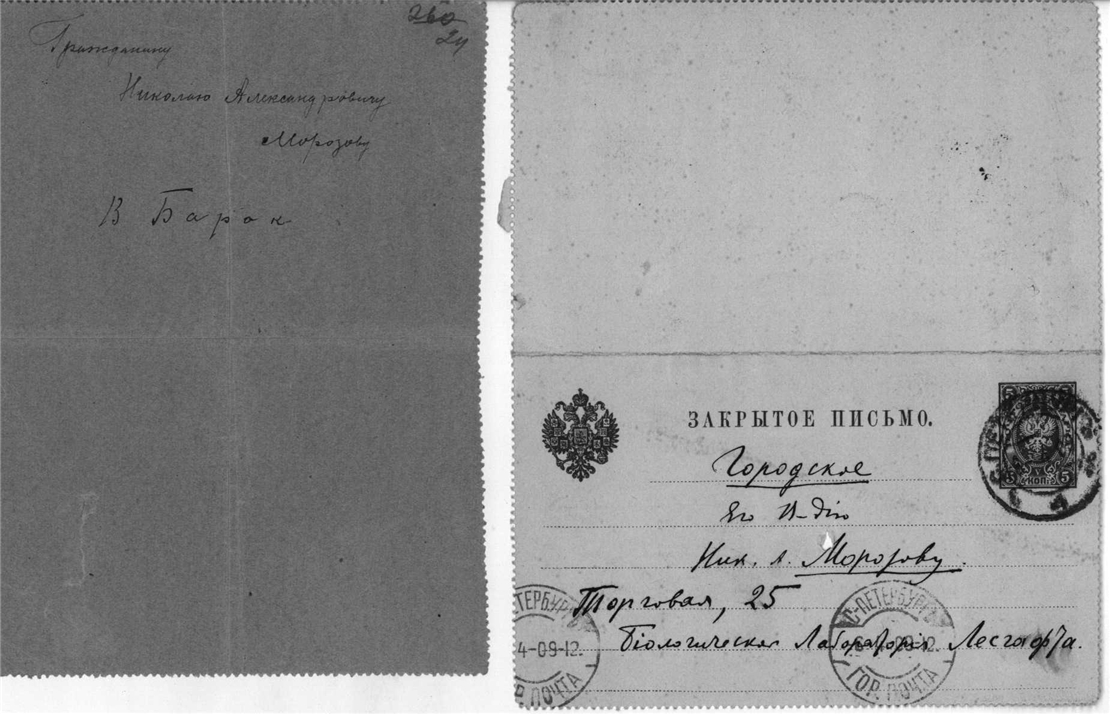 260
24
Гражданину
Николаю Александровичу
Морозову
В Барак
ЗАКРЫТОЕ ПИСЬМО.
5 5
5 КОП. 5
Городское
Его В-дiю
Ник. А. Морозову.
Торговая, 25
Бiологическая Лабораторiя Лесгафта.
ПЕТЕРБУРГЪ
4-09-12.
ГОР. ПОЧТА
С-ПЕТЕРБУРГЪ
09-12.
ГОР. ПОЧТА